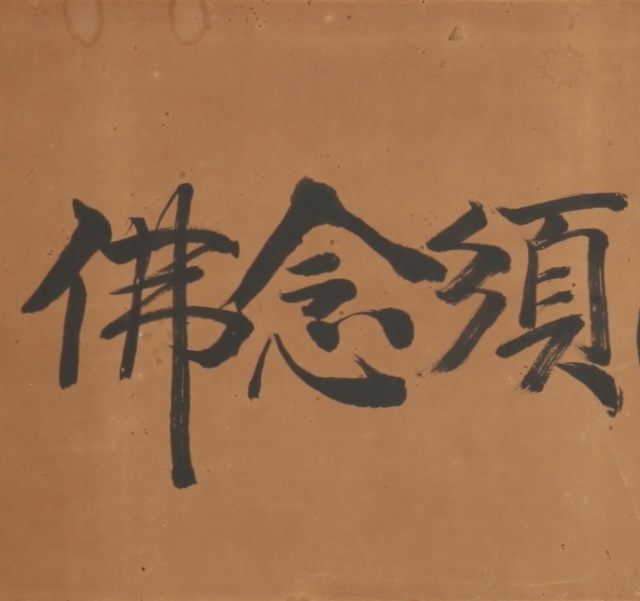 須念佛